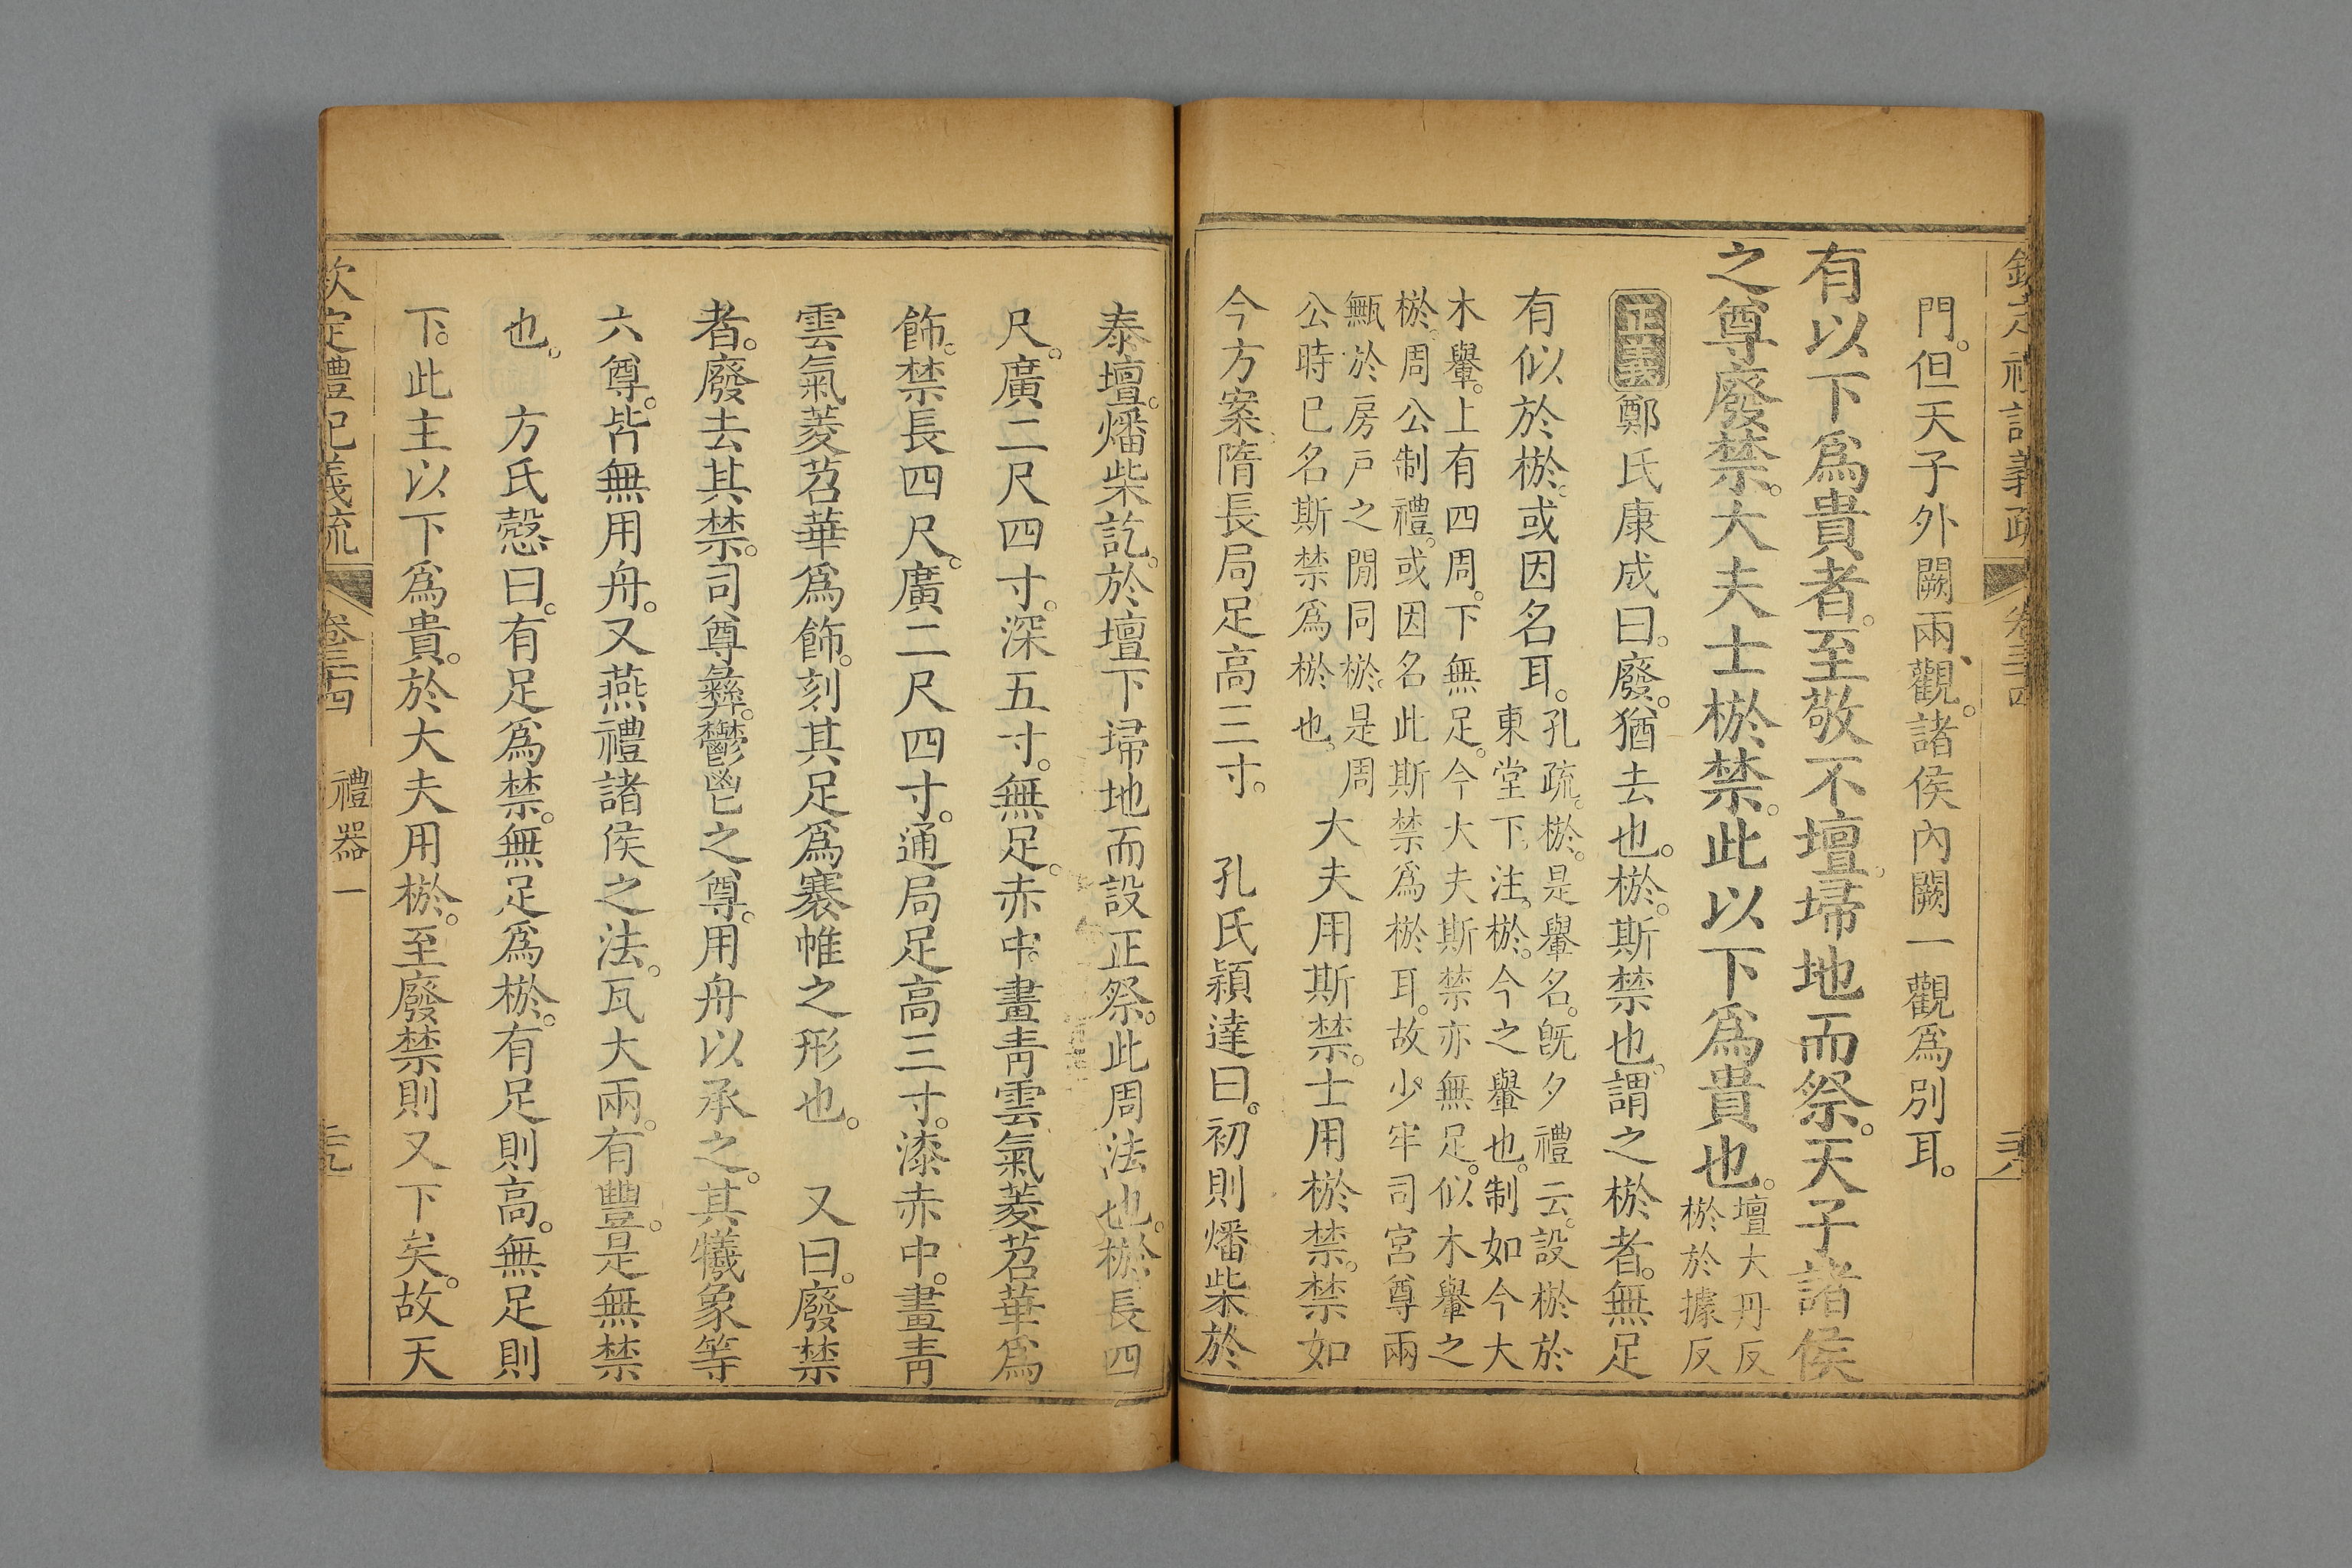 欽定禮記義疏 卷三十四 三八
門。但天子外闕兩觀。諸侯內闕一觀爲別耳。
有以下爲貴者。至敬不壇。埽地而祭。天子諸侯
之尊廢禁。大夫士棜禁。此以下爲貴也。壇大丹反
棜於據反
正義 鄭氏康成曰。廢。猶去也。棜。斯禁也。謂之棜者。無足
有似於棜。或因名耳。孔疏。棜。是轝名。旣夕禮云。設棜於
東堂下。注。棜。今之轝也。制如今大
木轝。上有四周。下無足。今大夫斯禁亦無足。似木轝之
棜。周公制禮。或因名此斯禁爲棜耳。故少牢司宮尊兩
甒於房戶之閒同棜。是周
公時已名斯禁爲棜也。大夫用斯禁。士用棜禁。禁如
今方案隋長局足高三寸。 孔氏穎達曰。初則燔柴於
泰壇。燔柴訖。於壇下埽地而設正祭。此周法也。棜長四
尺。廣二尺四寸。深五寸。無足。赤中。畫靑雲氣菱苕華爲
飾。禁長四尺。廣二尺四寸。通局足高三寸。漆赤中。畫靑
雲氣菱苕華爲飾。刻其足爲褰帷之形也。 又曰。廢禁
者。廢去其禁。司尊彝。鬱鬯之尊。用舟以承之。其犧象等
六尊。皆無用舟。又燕禮諸侯之法。瓦大兩。有豐。是無禁
也。 方氏慤曰。有足爲禁。無足爲棜。有足則高。無足則
下。此主以下爲貴。於大夫用棜。至廢禁則又下矣。故天
欽定禮記義疏 卷三十四 禮器一 三九